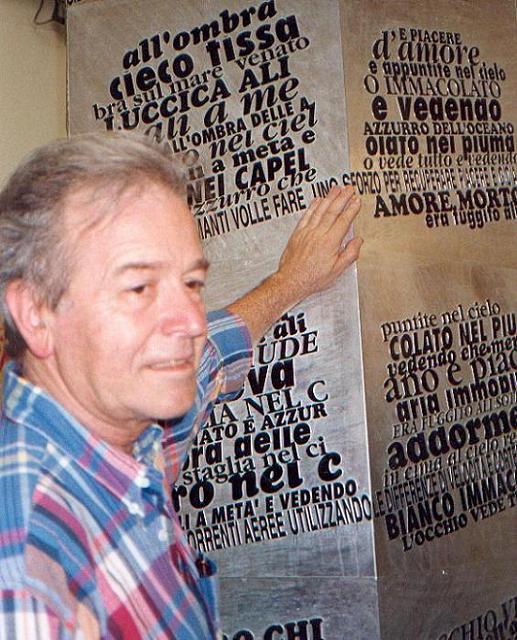 all'ombra
cieco fissa
bra sul mare venato
LUCCICA ALI
a me
L'OMBRA DELLE A
o nel ciel
a meta e
NEI CAPEL
zzurro che
IANTI VOLLE FARE UNO SFORZO PER RECUPERARE
E PIACERE
d'amore
e appuntite nel cielo
O IMMACOLATO
e vedendo
AZZURRO DELL'OCEANO
olato nel piuma
o vede tutto e vedendo
AMORE MORTO
era fuggito al
ali
UDE
va
IA NEL C
ATO E AZZUR
ra delle
staglia nel ci
ro nel c
LI A META' E VEDENDO
ORRENTI AEREE UTILIZZANDO LE DIFFERENZE DI
puntite nel cielo
COLATO NEL PIU
vedendo che mer
ano e piac
aria immobi
ERA FUGGITO AL SOL
addorme
in cima al cielo
BIANCO IMMAC
L'OCCHIO VEDE T
O CHI
CCHIO V